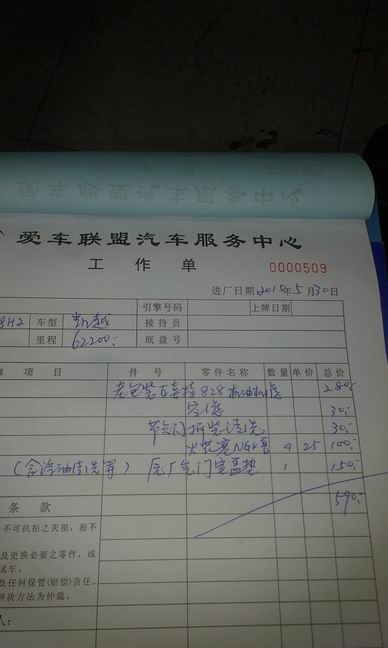 爱车联盟汽车服务中心
爱车联盟汽车服务中心
工作单
0000509
进厂日期 2015年5月30日
引擎号码 上牌日期
8H2 车型 凯越 接待员
里程 62200 底盘号
项目 件号 零件名称 数量 单价 总价
828机油机滤 280
空滤 30
节气门拆装清洗 30
火花塞NGK 4 25 100
原厂气门室盖垫 1 150
590
条款
不可抗拒之灾损，恕不
及更换必要之零件，或
试车。
负任何保管(赔偿)责任。
解决方法为仲裁。